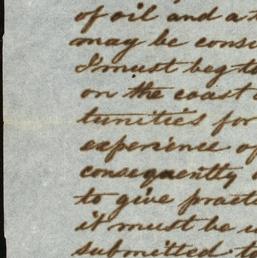 of oil and a
may be cons
I must beg to
on the coast
tunities for
experience of
consequently
to give pract
it must be
submitted to